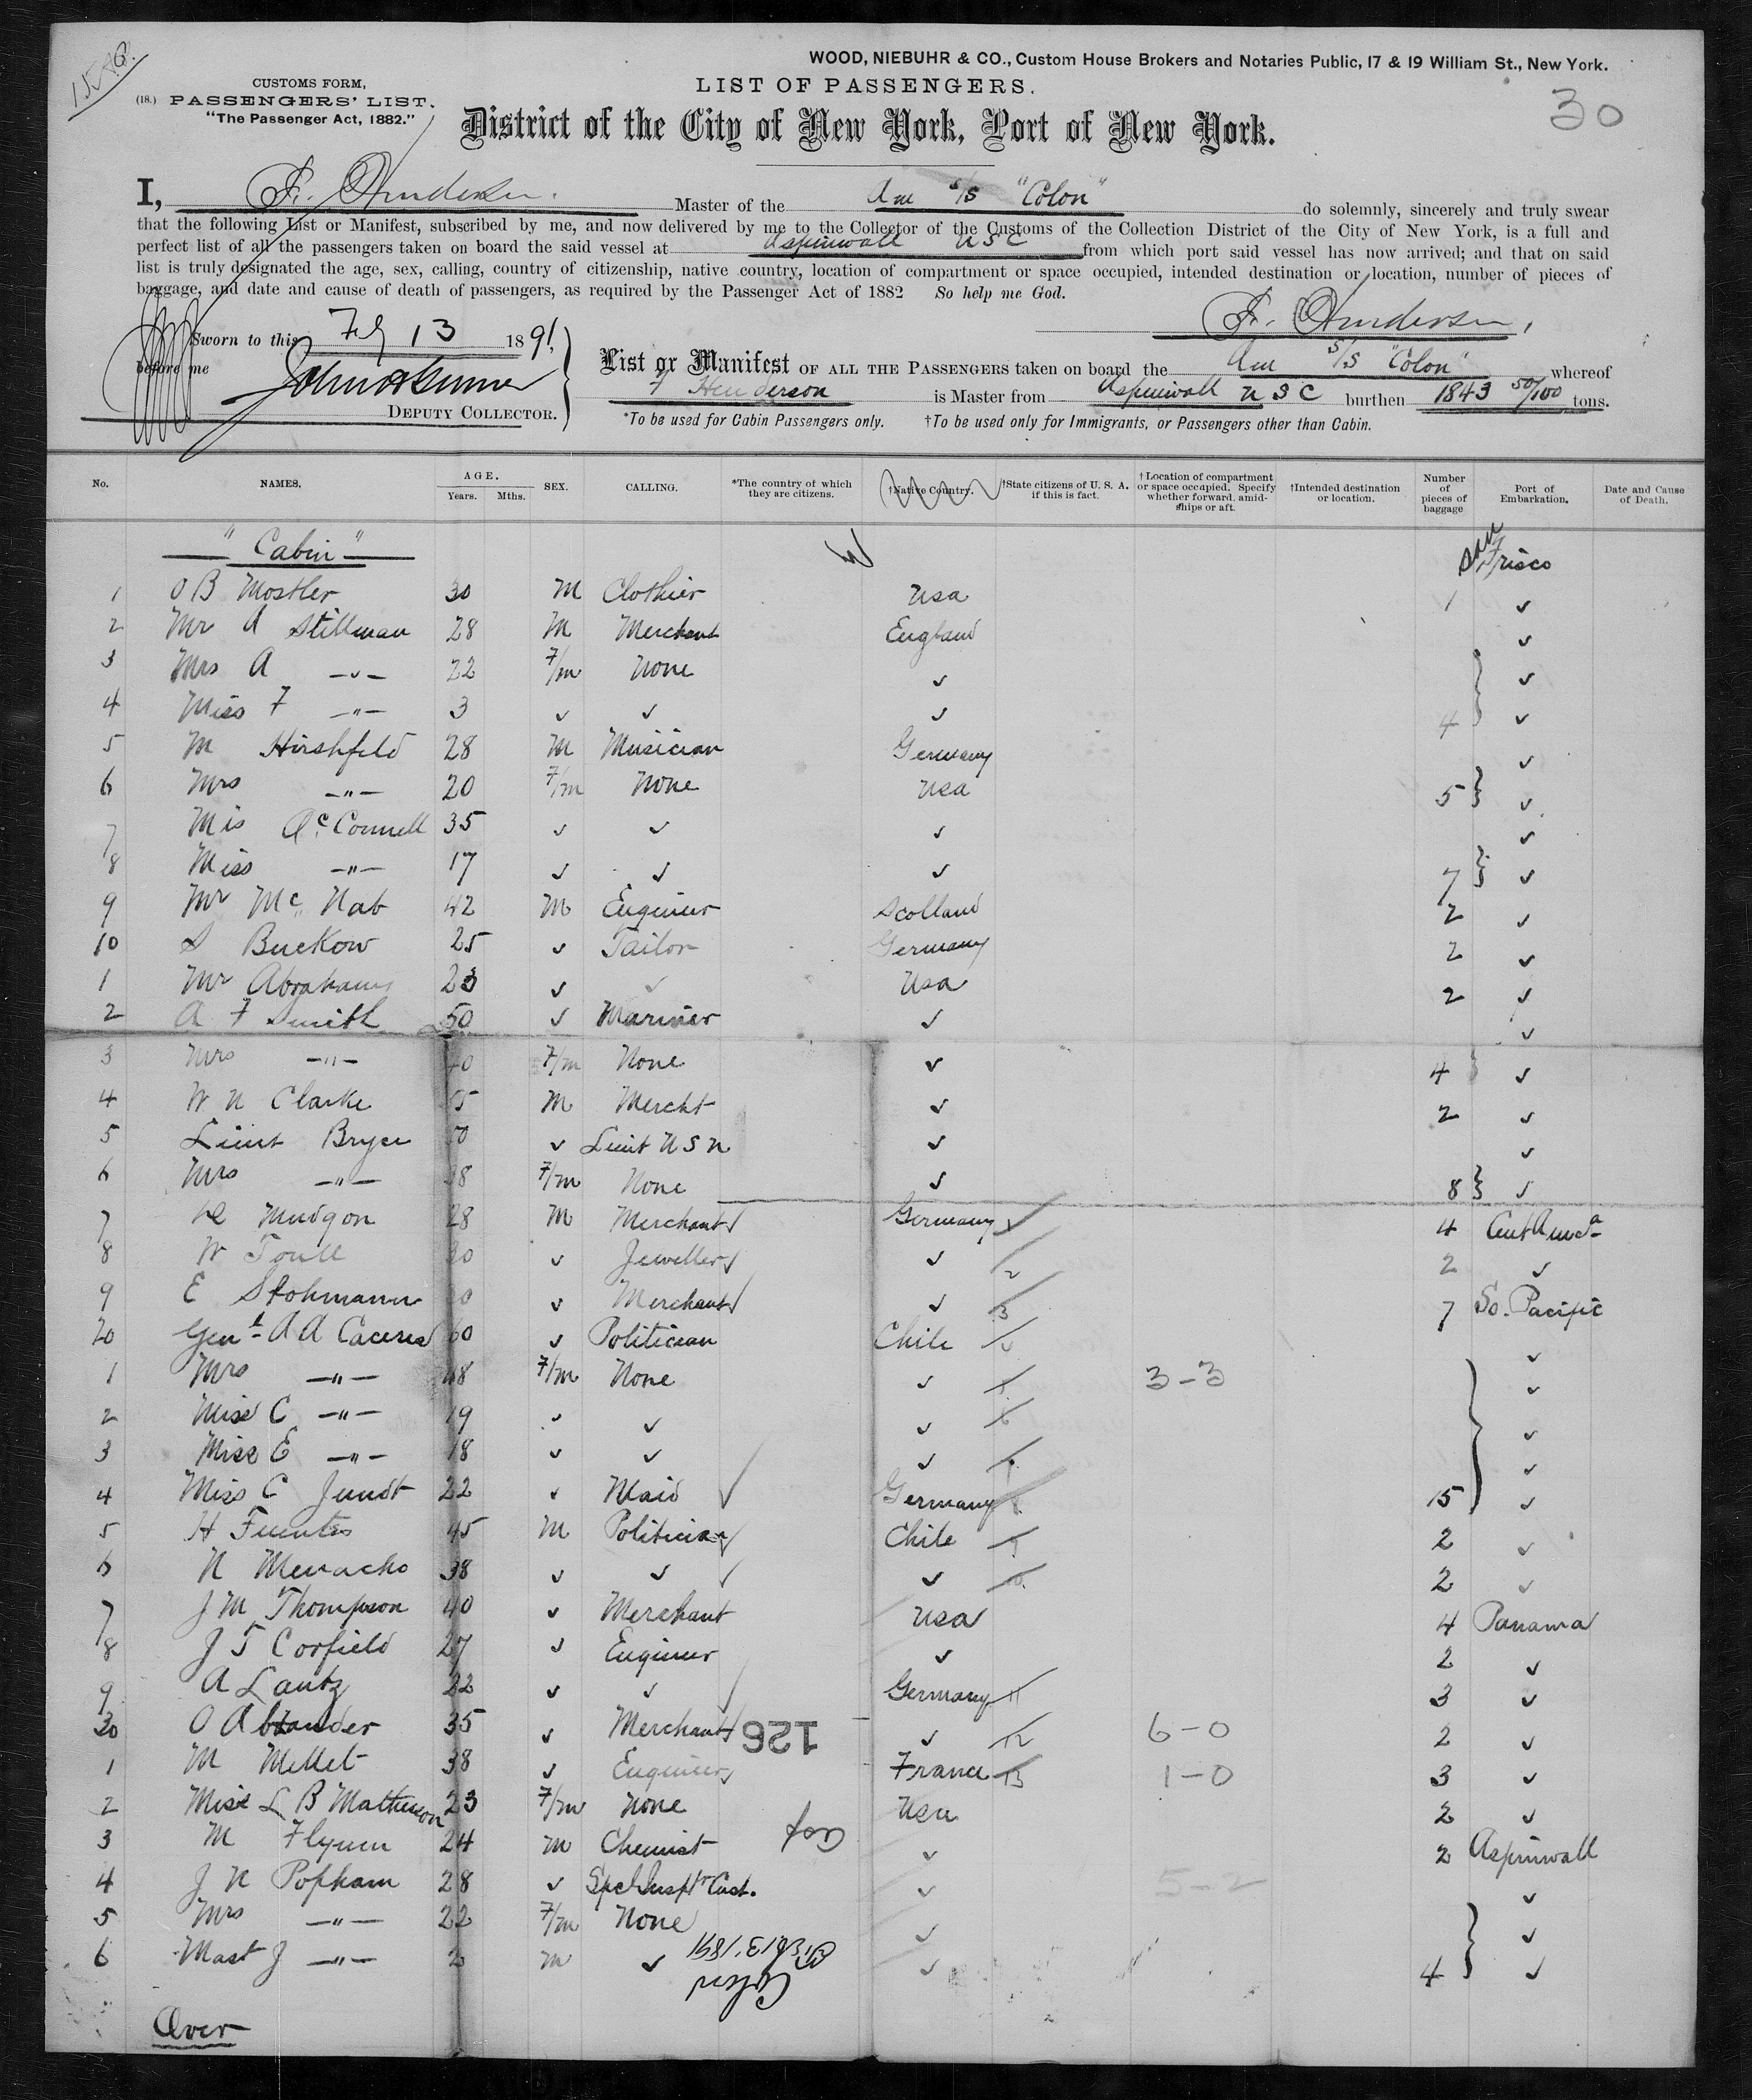 1586.
WOOD, NIEBUHR & CO., Custom House Brokers and Notaries Public, 17 & 19 William St., New York.
CUSTOMS FORM,
(18.) PASSENGERS' LIST.
"The Passenger Act, 1882."
LIST OF PASSENGERS.
30
District of the City of New York, Port of New York.
I, F. Henderson. Master of the Am S/S "Colon" do solemnly, sincerely and truly swear
that the following List or Manifest, subscribed by me, and now delivered by me to the Collector of the Customs of the Collection District of the City of New York, is a full and
perfect list of all the passengers taken on board the said vessel at Aspinwall U S C from which port said vessel has now arrived; and that on said
list is truly designated the age, sex, calling, country of citizenship, native country, location of compartment or space occupied, intended destination or location, number of pieces of
baggage, and date and cause of death of passengers, as required by the Passenger Act of 1882 So help me God.
F. Henderson,
Sworn to this Feb 13 1891,
before me
DEPUTY COLLECTOR.
List or Manifest OF ALL THE PASSENGERS taken on board the Am S/S "Colon" whereof
F Henderson is Master from Aspinwall U S C burthen 1843 50/100 tons.
*To be used for Cabin Passengers only. †To be used only for Immigrants, or Passengers other than Cabin.
No. NAMES. AGE. Years. Mths. SEX. CALLING. *The country of which they are citizens. †Native Country. †State citizens of U. S. A. if this is fact. †Location of compartment or space occupied. Specify whether forward, amidships or aft. †Intended destination or location. Number of pieces of baggage Port of Embarkation. Date and Cause of Death.
"Cabin" San Frisco
1 O B Mostler 30 M Clothier Usa 1 ✓
2 Mr A Stillman 28 M Merchant England ✓
3 Mrs A -"- 22 F/m None ✓ ✓
4 Miss F -"- 3 ✓ ✓ ✓ 4 ✓
5 M Hirshfeld 28 M Musician Germany ✓
6 Mrs -"- 20 F/m None Usa 5 ✓
7 Mis Connell 35 ✓ ✓ ✓ ✓
8 Miss -"- 17 ✓ ✓ ✓ 7 ✓
9 Mr Mc Nab 42 M Engineer Scotland 2 ✓
10 S Buckow 25 ✓ Tailor Germany 2 ✓
1 Mr Abrahams 23 ✓ ✓ Usa 2 ✓
2 A F Smith 50 ✓ Mariner ✓ ✓
3 Mrs -"- 40 F/m None ✓ 4 ✓
4 W N Clarke 55 M Mercht ✓ 2 ✓
5 Lieut Bryce 50 ✓ Lieut U S N ✓ ✓
6 Mrs -"- 38 F/m None ✓ 8 ✓
7 Mudgon 28 M Merchant Germany 4 Cent Amca
8 W Toull 30 ✓ Jeweller ✓ 2 2 ✓
9 E Stohmann ✓ Merchant ✓ 3 7 So. Pacific
20 Genl A A Caceres 60 ✓ Politician Chile ✓
1 Mrs -"- 48 F/m None ✓ 3-3 ✓
2 Miss C -"- 19 ✓ ✓ ✓ 6 ✓
3 Miss E -"- 18 ✓ ✓ ✓ ✓
4 Miss C Jundt 22 ✓ Maid Germany 15 ✓
5 H Fuentes 45 M Politician Chile 2 ✓
6 N Menacho 38 ✓ ✓ ✓ 10 2 ✓
7 J M Thompson 40 ✓ Merchant Usa 4 Panama
8 J T Corfield 27 ✓ Engineer ✓ 2 ✓
9 A Lantz 22 ✓ ✓ Germany 11 3 ✓
30 O Abtander 35 ✓ Merchant ✓ 12 6-0 2 ✓
126
1 M Mellet 38 ✓ Engineer France 13 1-0 3 ✓
2 Miss L B Mathewson 23 F/m None Usa 2 ✓
3 M Flynn 24 M Chemist ✓ 2 Aspinwall
4 J N Popham 28 ✓ Spcl Inspr Cust. ✓ 5-2 ✓
5 Mrs -"- 22 F/m None ✓ ✓
6 Mast J -"- 2 M ✓ ✓ 4 ✓
Colon
Feb 13. 1891
Over